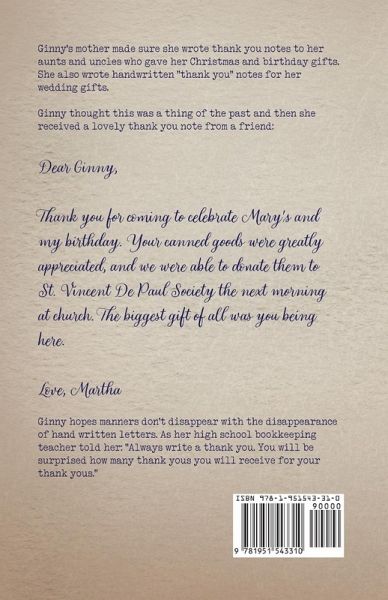 Ginny's mother made sure she wrote thank you notes to her
aunts and uncles who gave her Christmas and birthday gifts.
She also wrote handwritten "thank you" notes for her
wedding gifts.
Ginny thought this was a thing of the past and then she
received a lovely thank you note from a friend:
Dear Ginny,
Thank you for coming to celebrate Mary's and
my birthday. Your canned goods were greatly
appreciated, and we were able to donate them to
St. Vincent De Paul Society the next morning
at church. The biggest gift of all was you being
here.
Love, Martha
Ginny hopes manners don't disappear with the disappearance
of hand written letters. As her high school bookkeeping
teacher told her: "Always write a thank you. You will be
surprised how many thank yous you will receive for your
thank yous."
ISBN 978-1-951543-31-0
90000
9 781951 543310